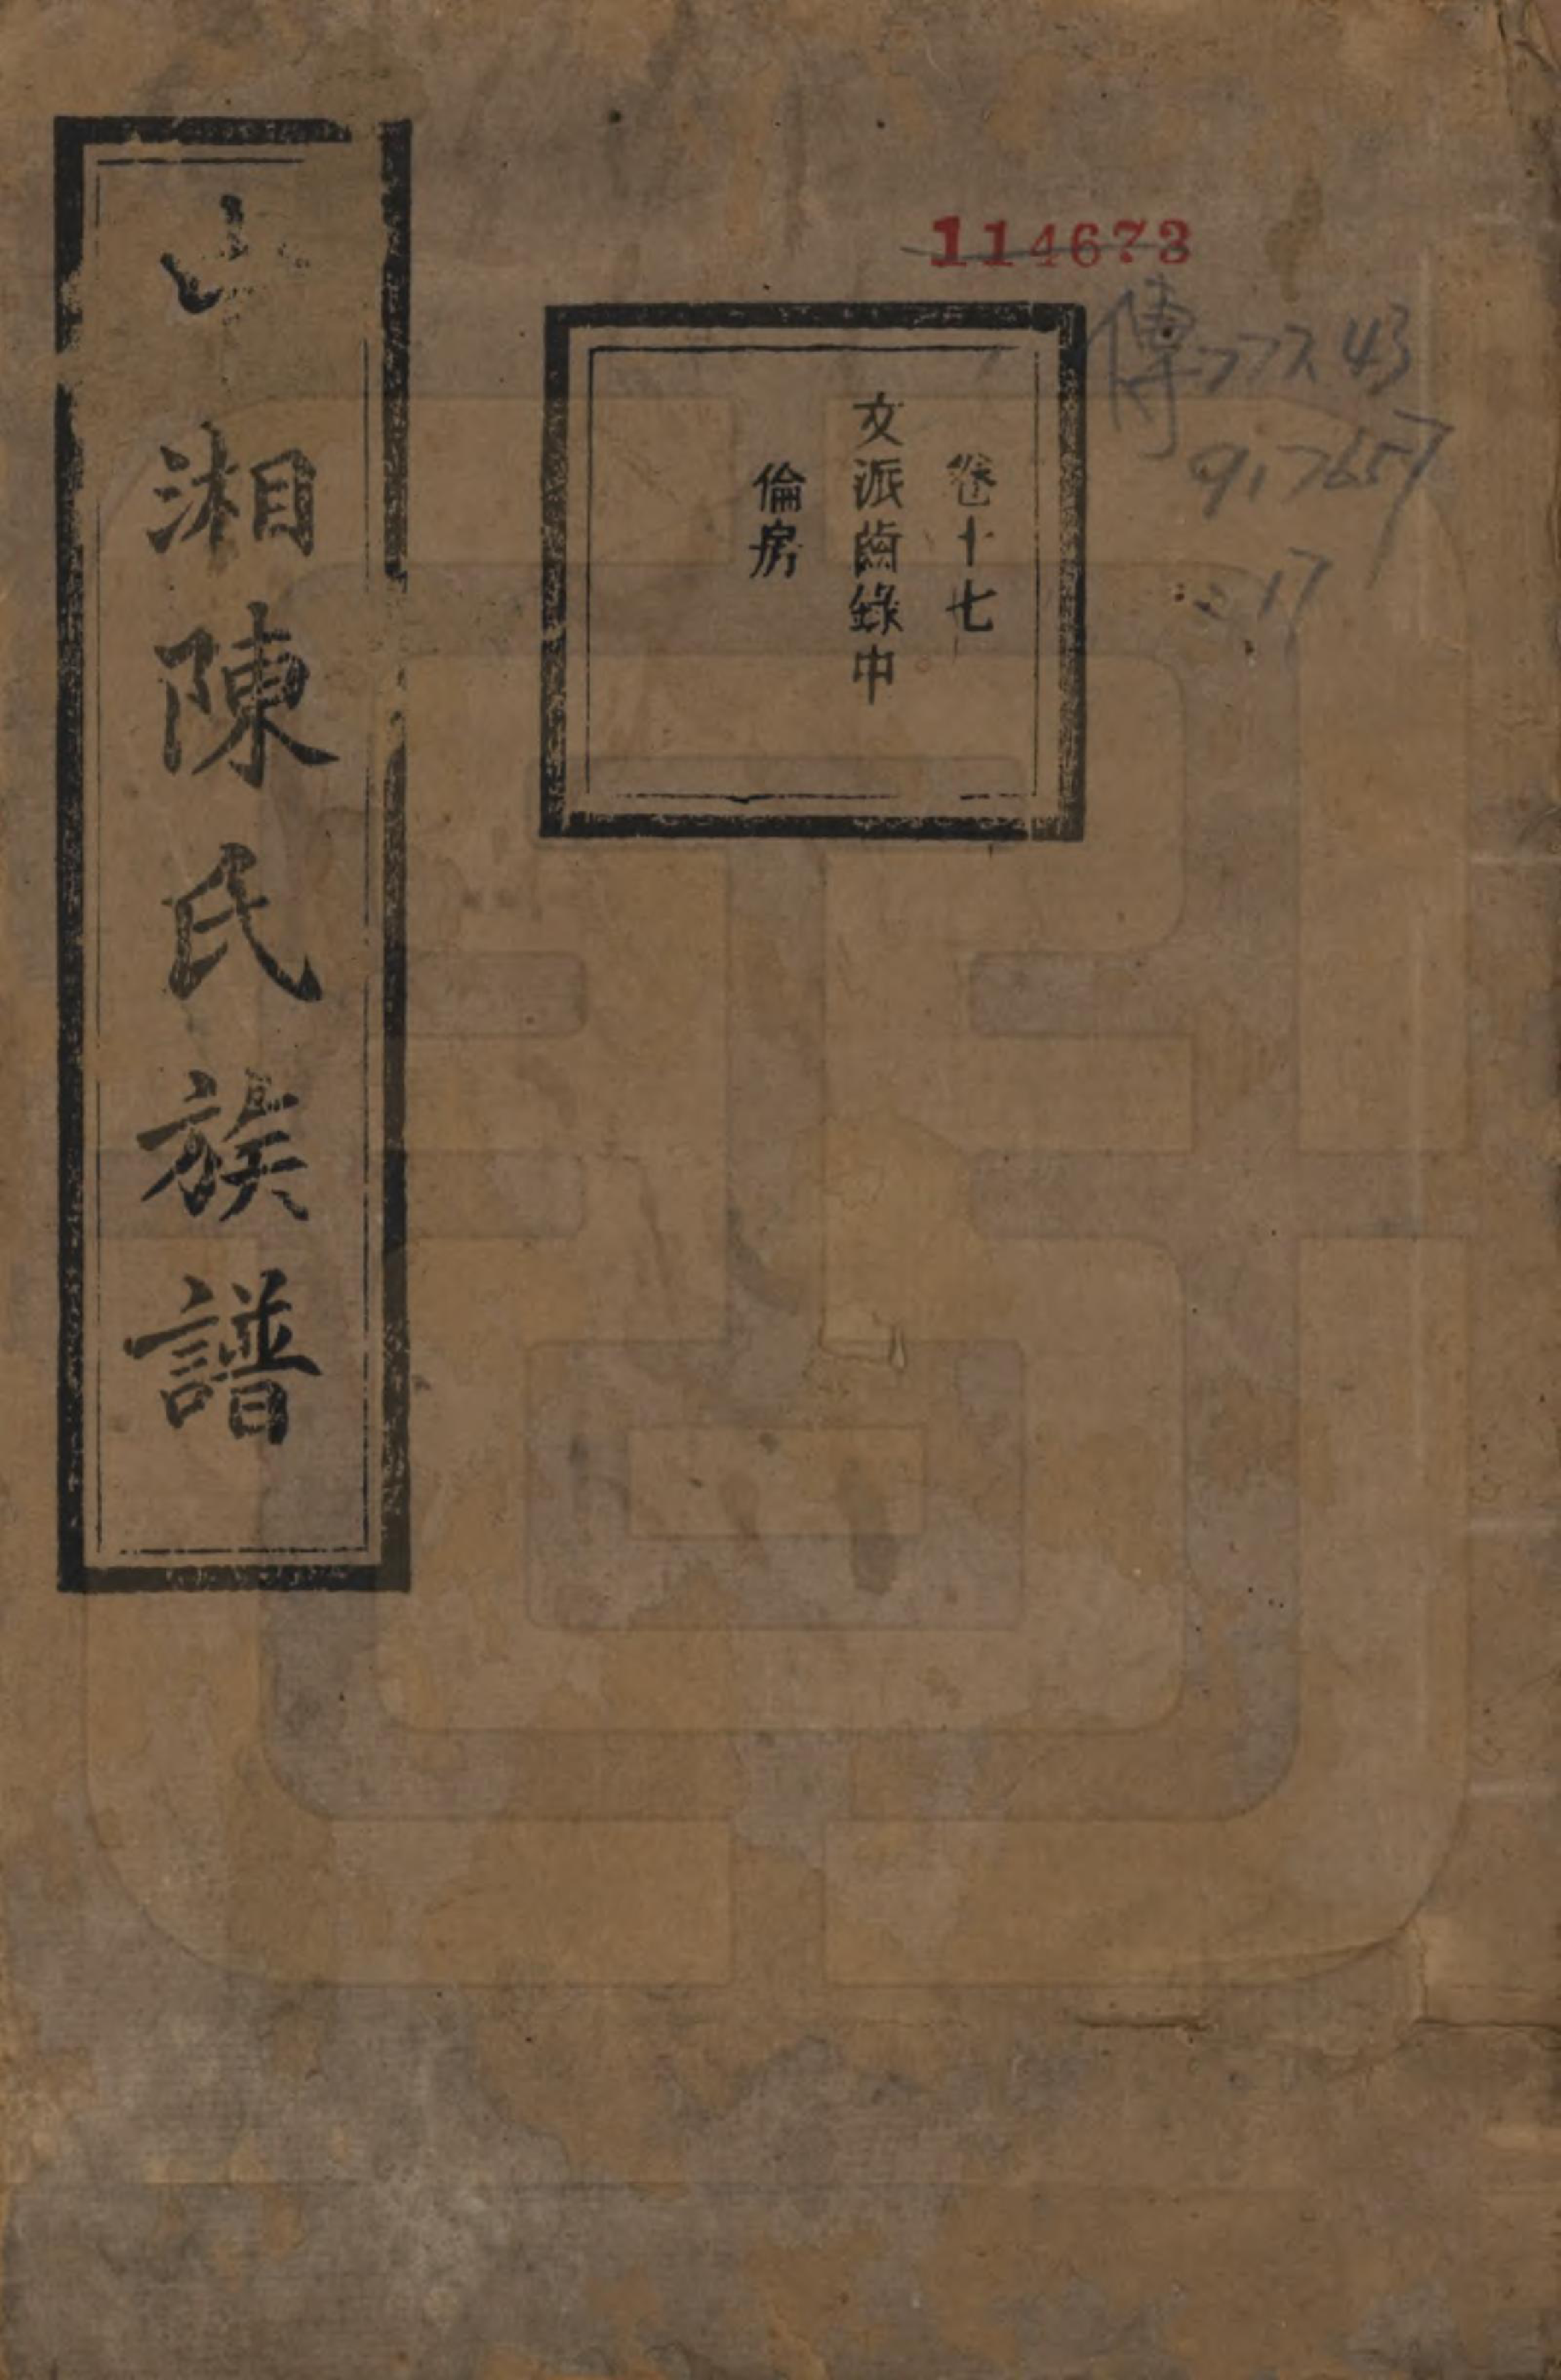 114673
傳777.43
917657
:17
卷十七
文派齒錄中
倫房
湘陳氏族譜